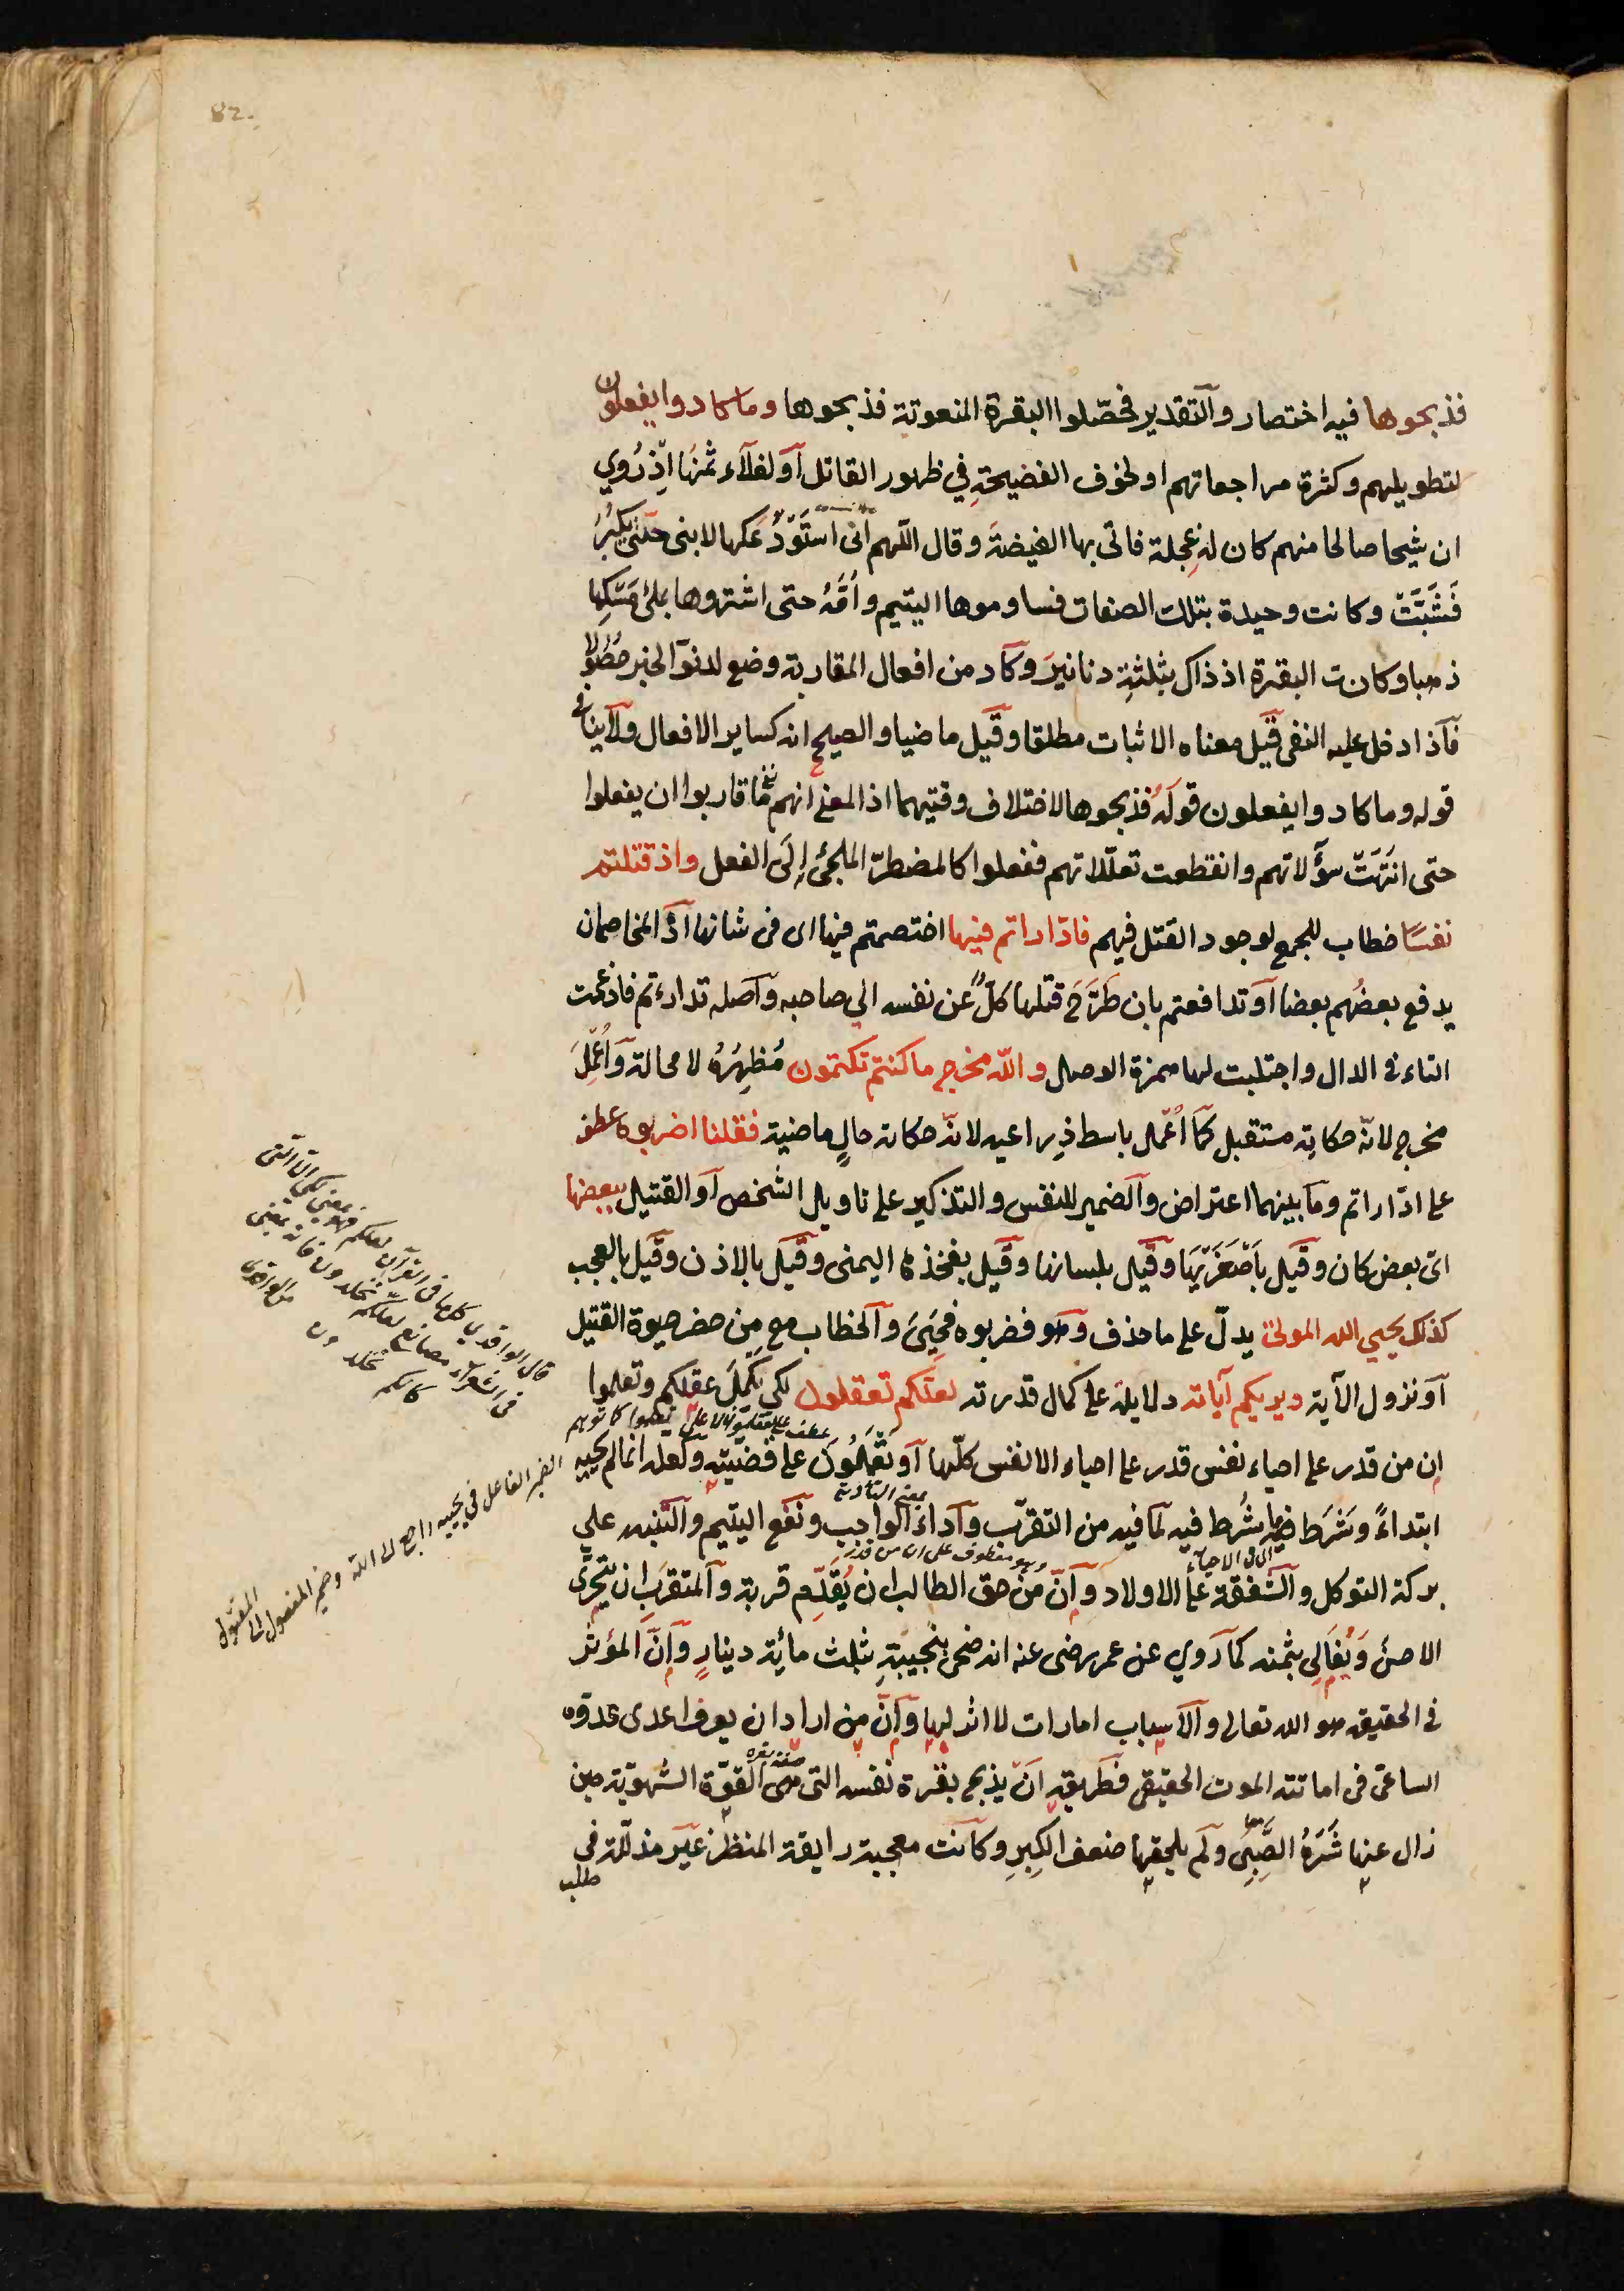 82.
فذبحوها فيه اختصار والتقدير فحصّلوا البقرة المنعوتة فذبحوها وما كادوا يفعلون
لتطويلهم وكثرة مراجعاتهم او لخوف الفضيحةِ في ظهور القاتل اَو لغلآء ثمنها اِذ رُوي
ان شيخا صالحا منهم كان له عِجلة فاتى بها الغيضةَ وقال اللّهم انى استَوْدَعكها لابنى حتى يكبُرَ
فَشَبَّتْ وكانت وحيدة بتلك الصفات فساوموها اليتيم وامَّهُ حتى اشتروها بملئ مَسْكِها
ذهبا وكانت البقرة اذ ذاك بثلثةِ دنانيرَ وكاد من افعال المقاربة وضع لدنوّ الخبر حصُولا
فاذا دخل عليه النفى قيل معناه الاثبات مطلقا وقيل ماضيا والصحيح انه كساير الافعال ولا ينافى
قوله وما كادوا يفعلون قولَهُ فذبحوها لاختلاف وقتيهما اذ المعنى انهم ما قاربوا ان يفعلوا
حتى انتَهَتْ سؤالاتهم وانقطعت تعلّلاتهم ففعلوا كالمضطرّ الملجئ اِلَى الفعل واذ قتلتم
نفسًا خطاب للجمع لوجود القتل فيهم فادّاراتم فيها اختصمتم فيها اى فى شانها اذ المتخاصمان
يدفع بعضُهم بعضا اَو تدافعتم بان طَرَحَ قتلها كلٌّ عن نفسه الي صاحبه واصله تدارءتم فادغمت
التاء فى الدال واجتلبت لها همزة الوصل والله مخرج ما كنتم تكتمون مُظهِرُهُ لا محالة وَاُعْمِلَ
مخرج لانّه حكاية مستقبل كما اُعْمل باسط ذِراعيه لانّه حكاية حالٍ ماضية فقلنا اضربوه عطف
على ادّاراتم وما بينهما اعتراض والضمير للنفس والتذكير على تاويل الشخص اَو القتيل ببعضها
اىّ بعض كان وقيل باَصْغَرَيْهَا وقيل بلسانها وقيل بفخذها اليمنى وقيل بالاذن وقيل بالعجب
كذلك يحيي الله الموتى يدلّ على ما حذف وهو فضربوه فحَيِىَ والخطاب مع مِن حضر حيوة القتيل
اَو نزول الآية ويريكم آياته دلايله على كمال قدرته لعلّكم تعقلون لكى يَكْمُلَ عقلكم وتعلموا
ان من قدر على احياء نفس قدر على احياء الانفس كلّها اَو تَعْمَلُونَ على قضيّته ولعله انما لم يحييه
ابتداءً وشَرَط فيه ما شُرط فيه لما فيه من التقرّب واَداءِ الواجب ونفع اليتيم والتنبيه على
بركة التوكل والشفقة على الاولاد واَنّ مِنْ حق الطالب ان يُقَدِّم قربة والمتقرِّب ان يتحرّى
الاحسنَ وَيُغَالِى بثمنه كما روي عن عمر رضى عنه انه ضحى بنجيبةٍ بثلث مائة دينارٍ واَنَّ المؤثر
فى الحقيقة هو الله تعالى والاسباب امارات لا اثر لها واَنّ من اراد ان يعرف اعدى عدوّه
الساعى فى اماتته الموت الحقيقى فطريقه اَنْ يذبح بقرة نفسه التى هى القوّة الشهويّة حين
زال عنها شَرَهُ الصِّبَى ولم يلحقها ضعف الكِبرِ وكانت معجبة رايقة المنظر غيرَ مذلّلة فى
طلب
معنى التأدية
وهو معطوف على ان من قدر
قال الواقدى كلّها فى القرآن لعلكم فهو بمعنى لكى الا التى
فى الشعراء مصانع لعلكم تخلدون فانه بمعنى
كانكم تخلدون من الواقدى
الضمير الفاعل فى يحييه راجع الى الله وضمير المفعول الى
المقتول